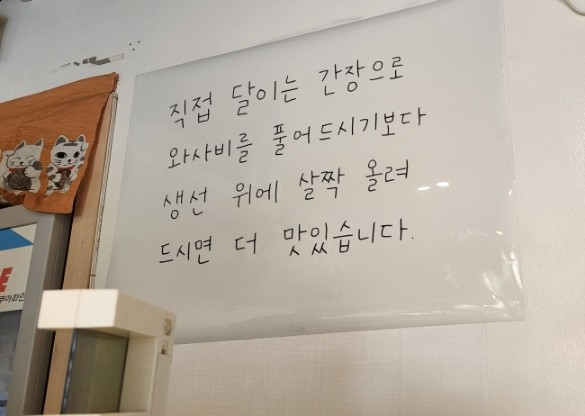 직접 달이는 간장으로
와사비를 풀어드시기보다
생선 위에 살짝 올려
드시면 더 맛있습니다.